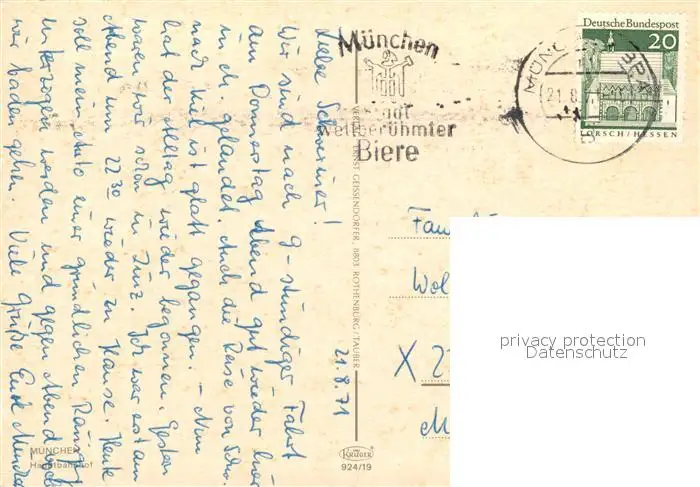 Liebe Schweriner!
Wir sind nach 9-stündiger Fahrt
am Donnerstag Abend gut wieder hier
in gelandet. Auch die Reise von Schw.
nach ist glatt gegangen. – Nun
hat der Alltag wieder begonnen. Gestern
waren wir schon in Ich war erst am
Abend um 22 30 wieder zu Hause. Heute
soll mein Auto einer gründlichen
unterzogen werden und gegen Abend
wir baden gehen. Viele Grüße
21.8.71
München
Stadt
weltberühmter
Biere
MÜNCHEN
21.8
Deutsche Bundespost
20
LORSCH/HESSEN
VERLAG ERNST GEISSENDÖRFER, 8803 ROTHENBURG/TAUBER
Fam
Wol
X 2
M
privacy protection
Datenschutz
MÜNCHEN
Hauptbahnhof
KRÜGER
924/19